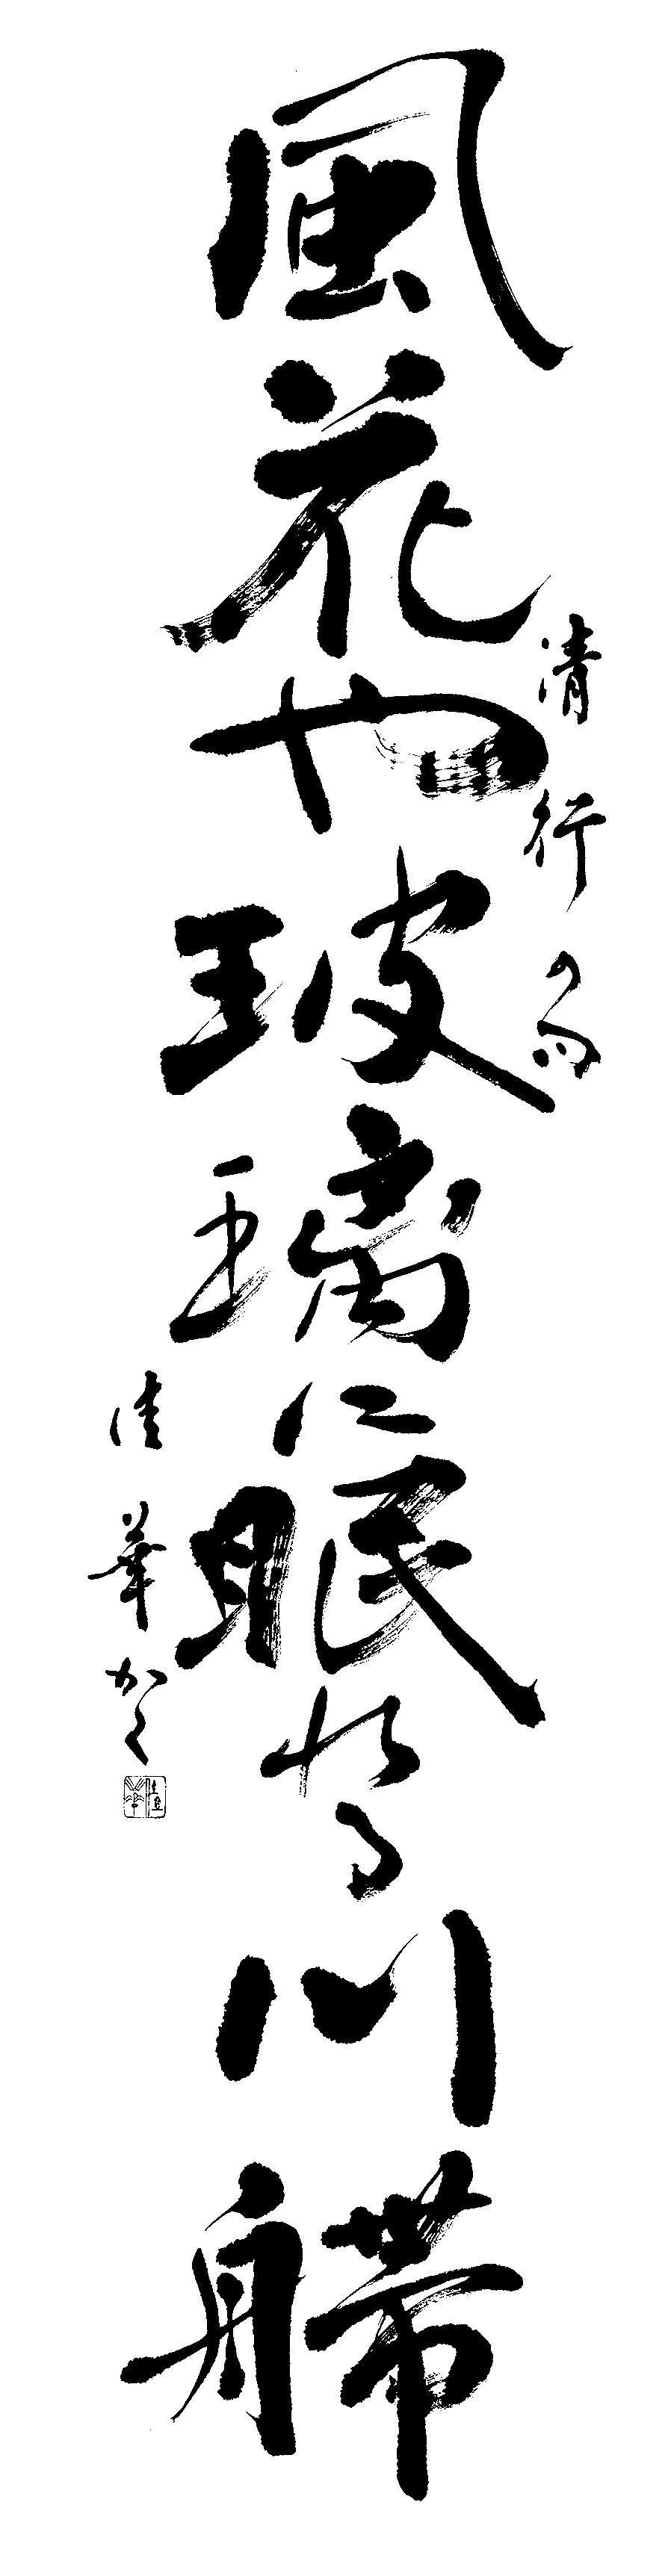 風花や玻璃に眠れる川艜
清行の句
佳華かく